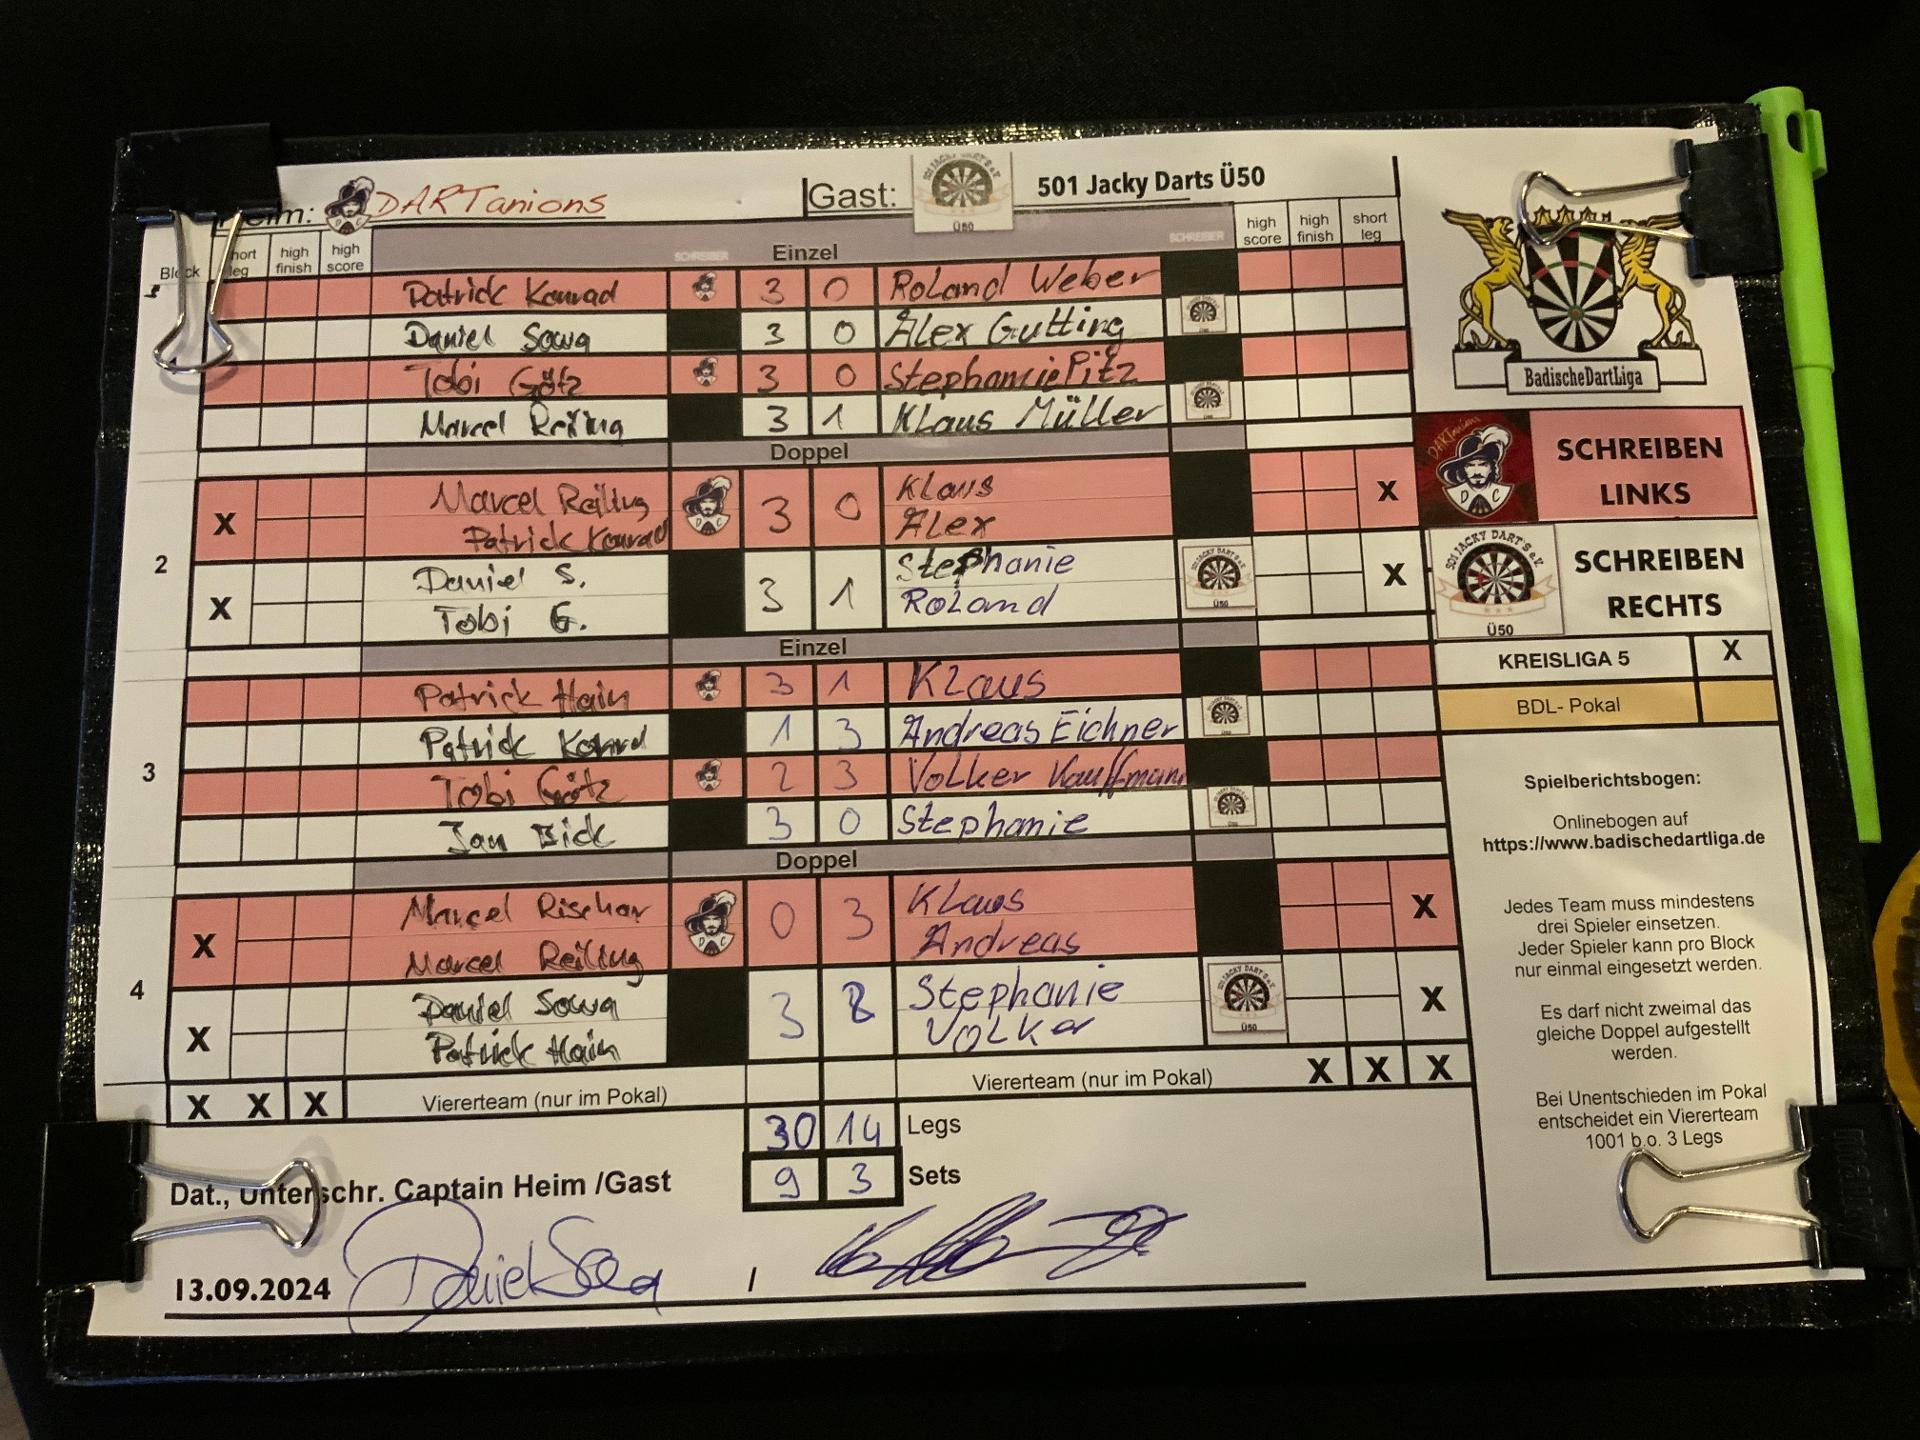 Heim: DARTanions Gast: 501 Jacky Darts Ü50
Block short leg high finish high score SCHREIBER Einzel SCHREIBER high score high finish short leg
Patrick Konrad 3 0 Roland Weber
Daniel Sowa 3 0 Alex Gutting
Tobi Götz 3 0 Stephanie Pitz
Marcel Reiling 3 1 Klaus Müller
Doppel
2
X Marcel Reiling 3 0 Klaus X
Patrick Konrad Alex
X Daniel S. 3 1 Stephanie X
Tobi G. Roland
Einzel
3
Patrick Hain 3 1 Klaus
Patrick Konrad 1 3 Andreas Eichner
Tobi Götz 2 3 Volker Kauffmann
Jan Bick 3 0 Stephanie
Doppel
4
X Marcel Rischar 0 3 Klaus X
Marcel Reiling Andreas
X Daniel Sowa 3 2 Stephanie X
Patrick Hain Volker
X X X Viererteam (nur im Pokal) Viererteam (nur im Pokal) X X X
30 14 Legs
9 3 Sets
Dat., Unterschr. Captain Heim /Gast
13.09.2024 Daniel Sowa /
BadischeDartLiga
DARTanions
D C
SCHREIBEN
LINKS
501 JACKY DART'S e.V.
Ü50
SCHREIBEN
RECHTS
KREISLIGA 5 X
BDL- Pokal
Spielberichtsbogen:
Onlinebogen auf
https://www.badischedartliga.de
Jedes Team muss mindestens
drei Spieler einsetzen.
Jeder Spieler kann pro Block
nur einmal eingesetzt werden.
Es darf nicht zweimal das
gleiche Doppel aufgestellt
werden.
Bei Unentschieden im Pokal
entscheidet ein Viererteam
1001 b.o. 3 Legs